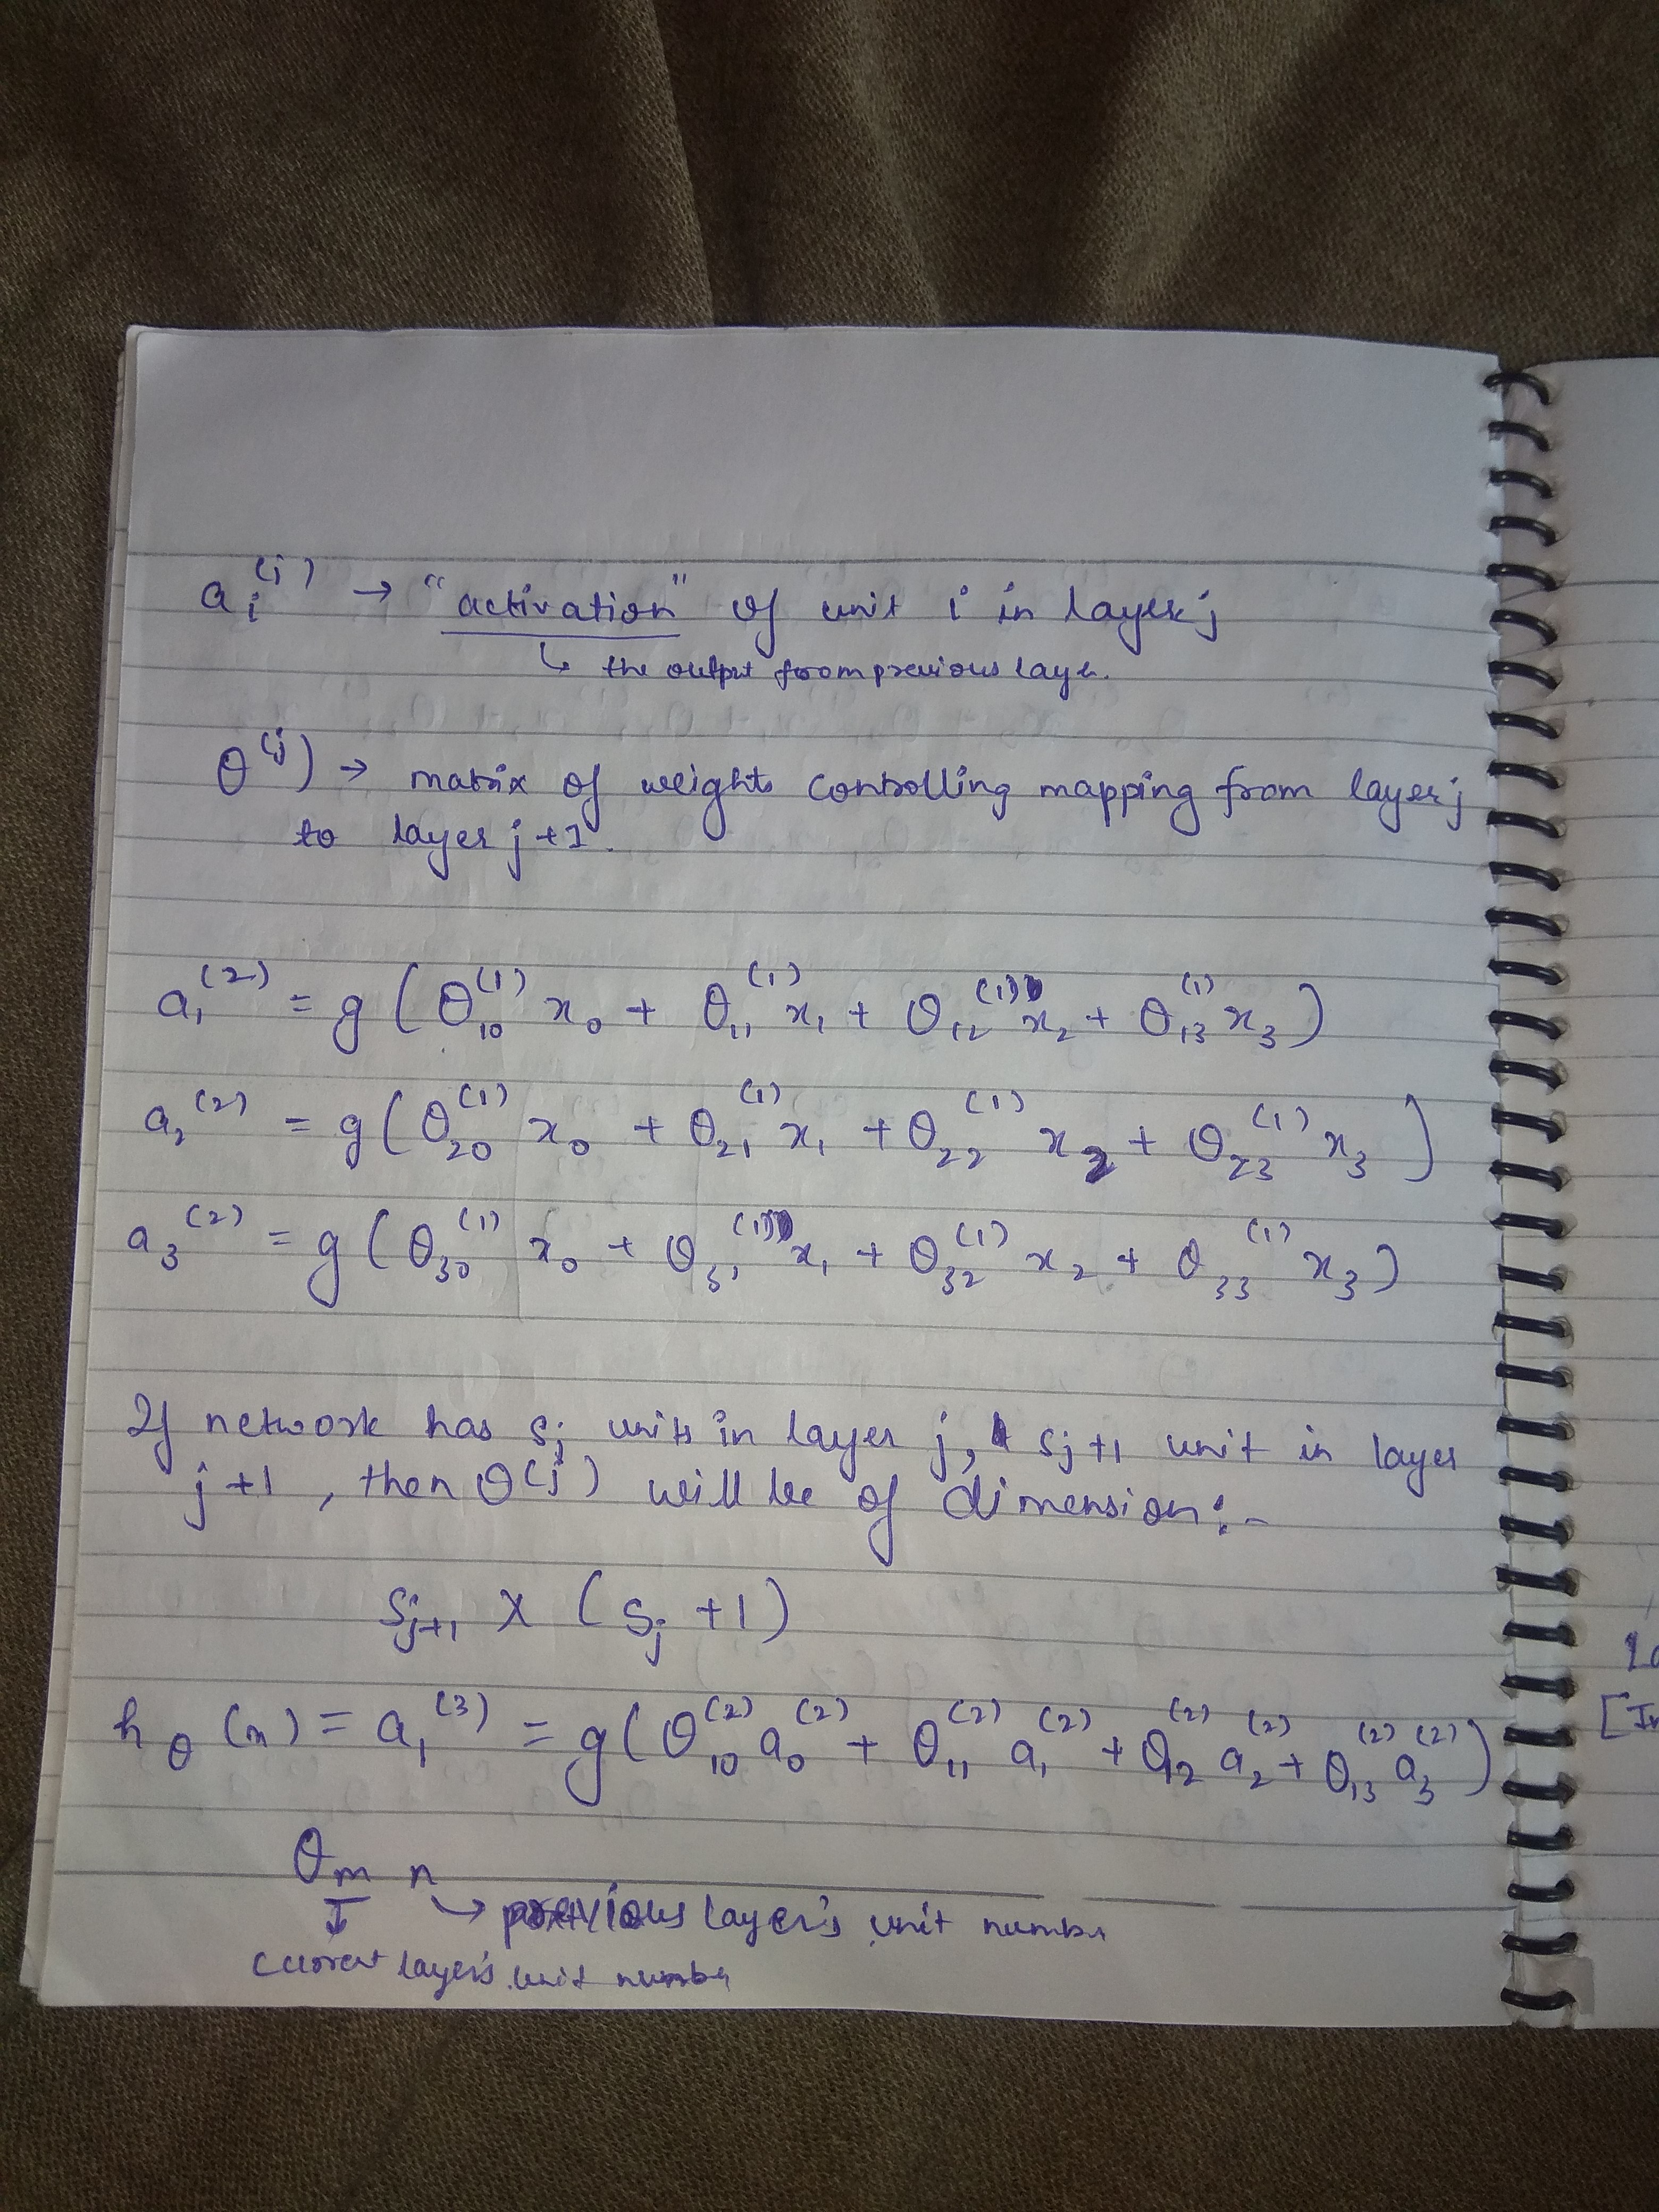 aᵢ⁽ʲ⁾ → "activation" of unit i in layer j
↳ the output from previous layer.
θ⁽ʲ⁾ → matrix of weights controlling mapping from layer j
to layer j+1.
a₁⁽²⁾ = g(θ₁₀⁽¹⁾x₀ + θ₁₁⁽¹⁾x₁ + θ₁₂⁽¹⁾x₂ + θ₁₃⁽¹⁾x₃)
a₂⁽²⁾ = g(θ₂₀⁽¹⁾x₀ + θ₂₁⁽¹⁾x₁ + θ₂₂⁽¹⁾x₂ + θ₂₃⁽¹⁾x₃)
a₃⁽²⁾ = g(θ₃₀⁽¹⁾x₀ + θ₃₁⁽¹⁾x₁ + θ₃₂⁽¹⁾x₂ + θ₃₃⁽¹⁾x₃)
If network has sⱼ units in layer j, & sj+1 unit in layer
j+1, then θ(j) will be of dimension:-
sⱼ₊₁ × (sⱼ + 1)
h_θ(x) = a₁⁽³⁾ = g(θ₁₀⁽²⁾a₀⁽²⁾ + θ₁₁⁽²⁾a₁⁽²⁾ + θ₁₂⁽²⁾a₂⁽²⁾ + θ₁₃⁽²⁾a₃⁽²⁾)
θₘ ₙ
↳ previous layer's unit number
current layer's unit number